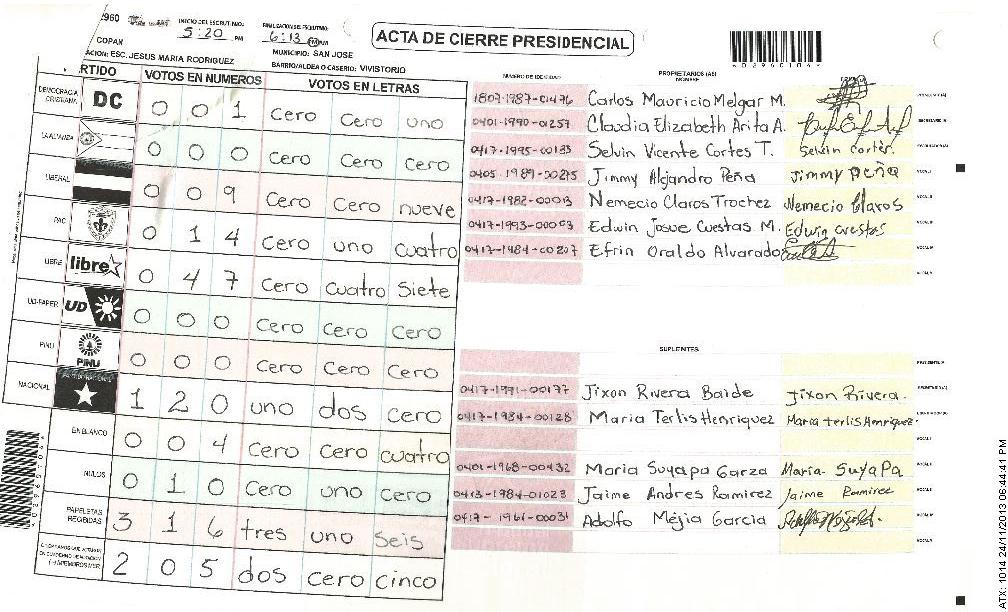 2960
INICIO DEL ESCRUTINIO: 5:20 PM
FINALIZACION DEL ESCRUTINIO: 6:13 PM
ACTA DE CIERRE PRESIDENCIAL
COPAN
MUNICIPIO: SAN JOSE
ESC. JESUS MARIA RODRIGUEZ
BARRIO/ALDEA O CASERIO: VIVISTORIO
RTIDO VOTOS EN NUMEROS VOTOS EN LETRAS
DEMOCRACIA CRISTIANA DC 0 0 1 cero cero uno
LA ALIANZA 0 0 0 cero cero cero
LIBERAL 0 0 9 cero cero nueve
PAC 0 1 4 cero uno cuatro
LIBRE libre 0 4 7 cero cuatro siete
UD-FAPER UD 0 0 0 cero cero cero
PINU PINU 0 0 0 cero cero cero
NACIONAL 1 2 0 uno dos cero
EN BLANCO 0 0 4 cero cero cuatro
NULOS 0 1 0 cero uno cero
PAPELETAS RECIBIDAS 3 1 6 tres uno seis
2 0 5 dos cero cinco
NUMERO DE IDENTIDAD PROPRIETARIOS (AS) NOMBRE
1807-1987-01476 Carlos Mauricio Melgar M.
0401-1990-01257 Claudia Elizabeth Arita A.
0417-1995-00133 Selvin Vicente Cortes T. Selvin Cortes.
0405-1989-00275 Jimmy Alejandro Peña Jimmy Peña
0417-1982-00013 Nemecio Claros Trochez Nemecio Claros
0417-1993-00003 Edwin Josue Cuestas M. Edwin cuestas
0417-1984-00207 Efrin Oraldo Alvarado
SUPLENTES
0417-1991-00177 Jixon Rivera Baide Jixon Rivera.
0417-1984-00128 Maria Terlis Henriquez Maria terlis Henriquez.
0401-1968-00432 Maria Suyapa Garza Maria Suyapa
0413-1984-01023 Jaime Andres Ramirez Jaime Ramirez
0417-1961-00031 Adolfo Mejia Garcia
ATX: 1014 24/11/2013 06:44:41 PM